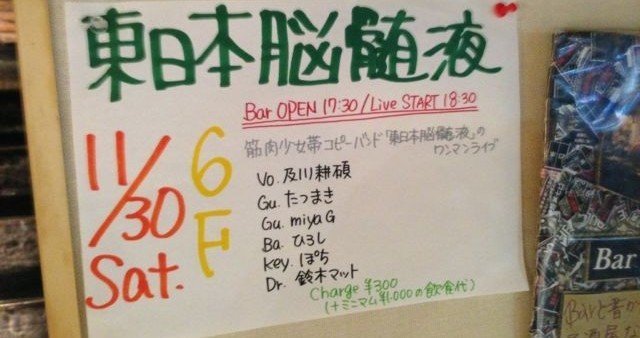 東日本脳髄液
Bar OPEN 17:30/Live START 18:30
筋肉少女帯コピーバンド「東日本脳髄液」の
ワンマンライブ
11/30
Sat.
6F
Vo. 及川耕碩
Gu. たつまき
Gu. miyaG
Ba. ひろし
Key. ぽち
Dr. 鈴木マット
Charge ¥300
(+ミニマム¥1,000の飲食代)
Bar
Barと書か
居酒屋な